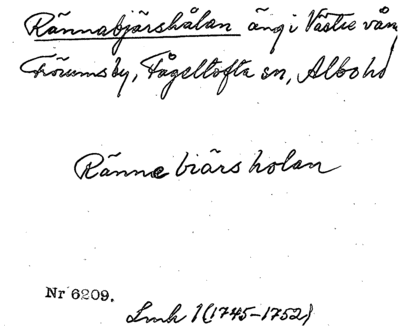 Rännabjärshålan äng i Västre vån
Frörumsby, Fågeltofta sn, Albo hd
Ränne biärs holan
Nr 6209.
Lmk 1 (1745-1752)